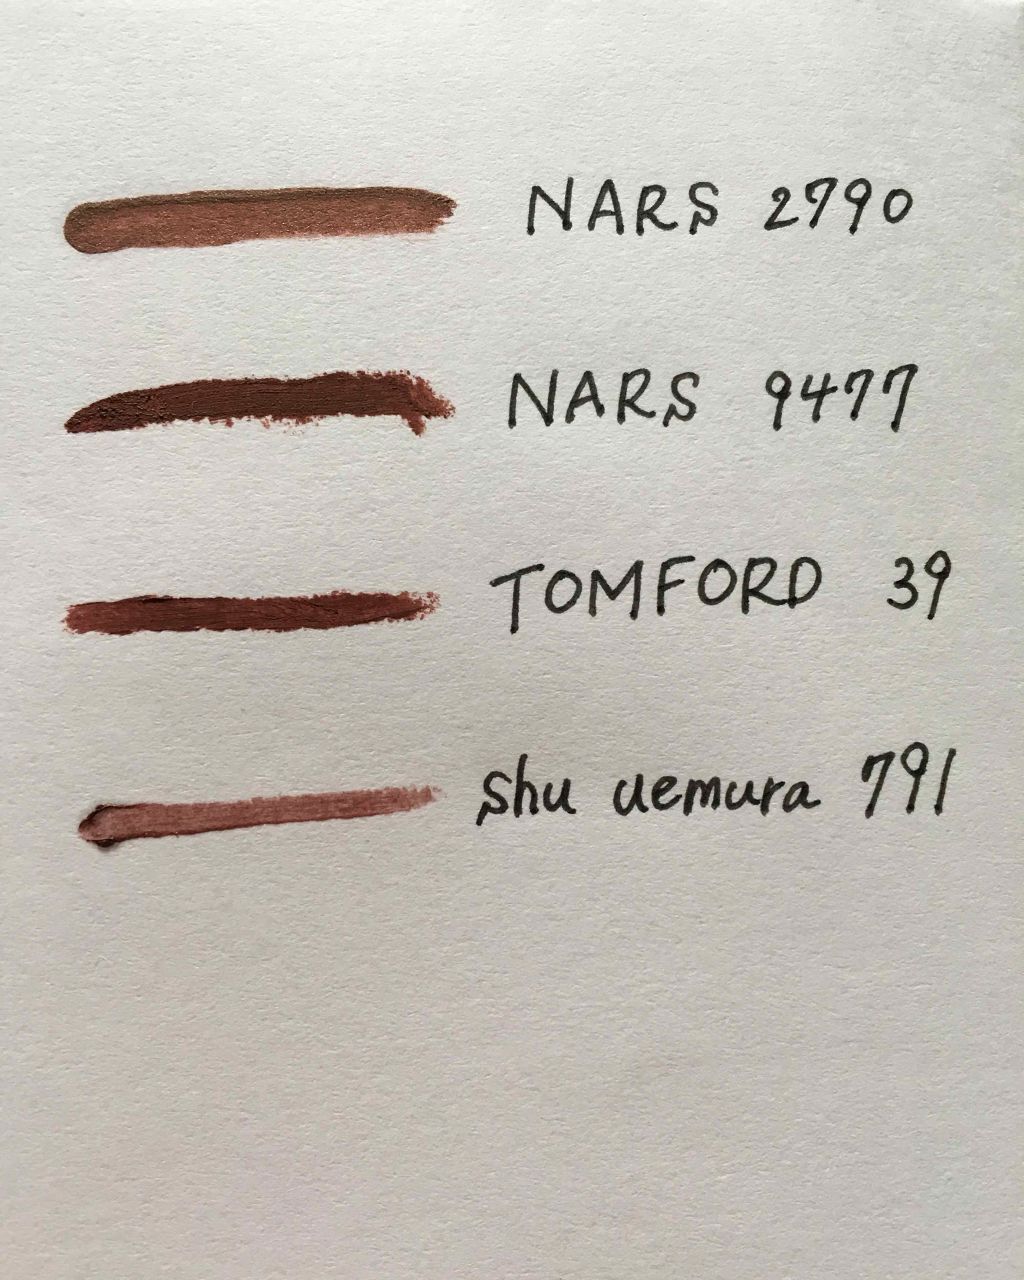 NARS 2790
NARS 9477
TOMFORD 39
shu uemura 791